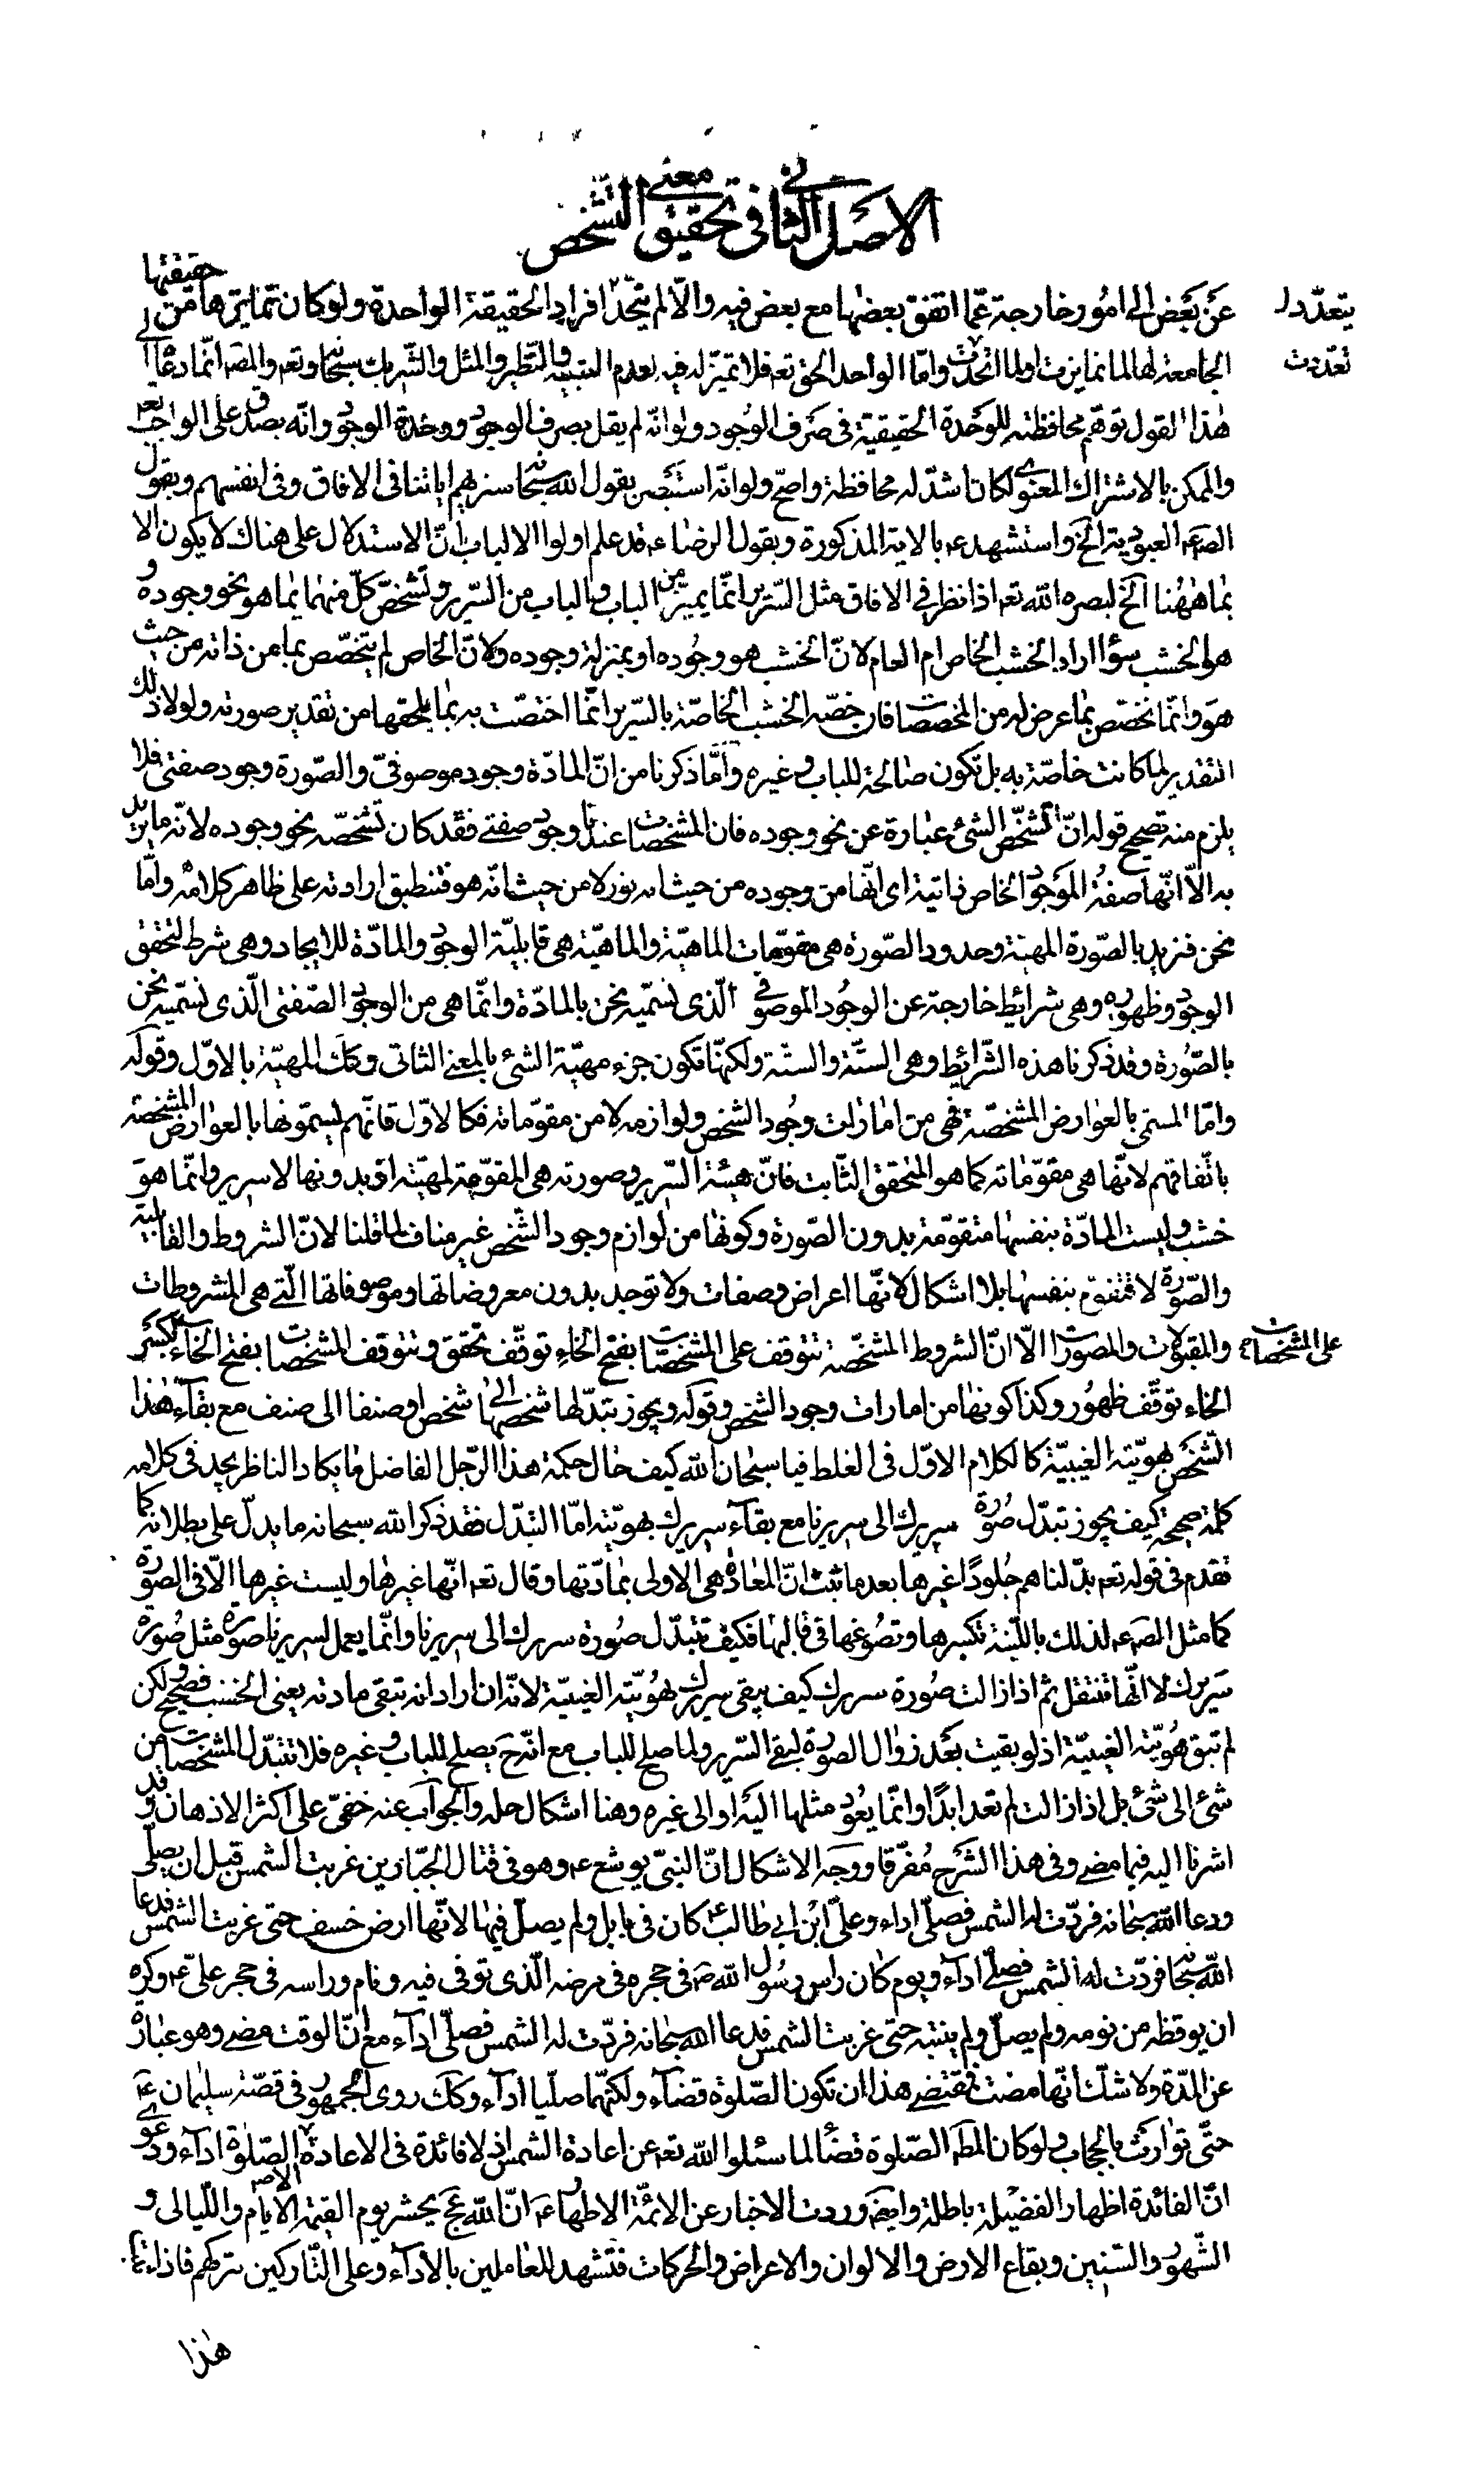 الاصل الثانى فى تحقيق معنى التشخص
عن بعض الى امور خارجة عمّا اتفق بعضها مع بعض فيه والّا لم يتحد افراد الحقيقة الواحدة ولو كان تمايزها من حقيقتها
يتعدد
الجامعة لها لما تمايزت اولما اتحدت وامّا الواحد الحق تعه فلا تميز له فيه لعدم الشبيه والنظير والمثل والشريك سبحانه وتعه والمصه انّما دعاه الى
تعددت
هذا القول توهّم محافظته للوحدة الحقيقية فى صرف الوجود ولو انّه لم يقل بصرف الوجود ووحدة الوجود وانّه يصدق على الواجب تعه
والممكن بالاشتراك المعنوى لكان اشدّ له محافظة واصحّ ولو انّه استبصر بقول الله سبحانه سنريهم اياتنا فى الافاق وفى انفسهم وبقول
الصه عه العبودية الخ واستشهد عه بالاية المذكورة وبقول الرضا عه قد علم اولوا الالباب انّ الاستدلال على هناك لا يكون الا
بما ههنا الخ لبصره الله تعه اذا نظر فى الافاق مثل السرير انّما يميز من الباب والباب من السرير وتشخّص كلّ منهما بما هو نحو وجوده و
هو الخشب سواء اراد الخشب الخاص ام العام لانّ الخشب هو وجوده او بمنزلة وجوده ولانّ الخاص لم يتخصّص بما من ذاته من حيث
هو وانّما تخصّص بما عرض له من المخصصات فان حصّة الخشب الخاصّة بالسرير انّما اختصّت به بما يلحقها من تقدير صورته ولولا ذلك
التقدير لما كانت خاصّة به بل تكون صالحة للباب وغيره وامّا ذكرنا من انّ المادّة وجود موصوفىّ والصّورة وجود صفتى فلا
يلزم منه تصحيح قوله انّ تشخّص الشئ عبارة عن نحو وجوده فان المشخصات عندنا وجود صفتى فقد كان تشخّصه نحو وجوده لانّه ما يريد
به الّا انّها صفة الموجود الخاص ذاتية اى انّها من وجوده من حيث انه نور لا من حيث انّه هو فتنطبق ارادته على ظاهر كلامه وامّا
نحن فنريد بالصّورة المهيّة وحدود الصّورة هى مقوّمات الماهيّة والماهيّة هى قابليّة الوجود والمادّة للايجاد وهى شرط لتحقق
الوجود وظهوره وهى شرائط خارجة عن الوجود الموصوفى الّذى نسمّيه نحن بالمادّة وانّما هى من الوجود الصّفتى الّذى نسمّيه نحن
بالصّورة وقد ذكرنا هذه الشّرائط وهى الستّة والستّة ولكنّها تكون جزء مهيّة الشئ بالمعنى الثانى وتلك المهيّة بالاوّل وقوله
وامّا المسمى بالعوارض المشخصّة فهى من امارات وجود الشخص ولوازمه لا من مقوّماته فكالاوّل فانّهم يسمّونها بالعوارض المشخصة
باتّفاقهم لانّها هى مقوّماته كما هو المتحقق الثّابت فانّ هيئة السّرير وصورته هى المقوّمة لمهيّته اذ بدونها لا سرير وانّما هو
خشب وليست المادّة بنفسها متقوّمة بدون الصّورة وكونها من لوازم وجود الشّخص غير مناف لما قلنا لانّ الشروط والقابلية
والصّورة لا تتقوّم بنفسها بلا اشكال لانّها اعراض وصفات ولا توجد بدون معروضاتها وموصوفاتها الّتى هى المشروطات
والمقبولات والمصوّرات الّا انّ الشروط المشخّصة تتوقف على المشخّصات بفتح الخاء توقّف تحقق وتتوقف المشخصات بفتح الخاء بكسر
على المشخصات
الخاء توقّف ظهور وكذا كونها من امارات وجود الشخص وقوله ويجوز تبدّلها شخصا الى شخص او صنفا الى صنف مع بقاء هذا
الشخص بهويّته الغيبيّة كالكلام الاوّل فى الغلط فيا سبحان الله كيف حال حكمة هذا الرّجل الفاضل ما يكاد الناظر يجد فى كلامه
كلمة صحيحة كيف يجوز تبدّل صورة سريرك الى سريرنا مع بقاء سريرك بهويّته امّا التبدّل فقد ذكر الله سبحانه ما يدلّ على بطلانه كما
تقدم فى قوله تعه بدّلناهم جلودًا غيرها بعد ما ثبت انّ المعادة هى الاولى بمادّتها وقال تعه انّها غيرها وليست غيرها الّا فى الصّورة
كما مثل الصه عه لذلك باللّبنة تكسرها وتصوغها فى قالبها فكيف تتبدّل صورة سريرك الى سريرنا وانّما يعمل لسريرنا صورة مثل صورة
سريرك لا انّها تنتقل ثم اذا زالت صورة سريرك كيف يبقى سريرك بهويّته الغيبيّة لانّه ان اراد انه تبقى مادته يعنى الخشب فصحيح ولكن
لم تبق هويّته الغيبيّة اذ لو بقيت بعد زوال الصورة لبقى السّرير ولما صلح للباب مع انّه ح يصلح للباب وغيره فلا تتبدّل المشخصات من
شئ الى شئ بل اذا زالت لم تعد ابدًا وانّما يعود مثلها اليه او الى غيره وهنا اشكال حله والجواب عنه خفىّ على اكثر الاذهان وقد
اشرنا اليه فيما مضى وفى هذا الشرح مفرّقا ووجه الاشكال انّ النبىّ يوشع عه وهو فى قتال الجبّارين غربت الشمس قبل ان يصلّى
ودعا الله سبحانه فردّت له الشمس فصلّى اداء وعلىّ ابن ابى طالب عه كان فى بابل ولم يصلّ فيها لانّها ارض خسف حتى غربت الشمس فدعا
الله سبحانه فردّت له الشمس فصلّى اداء ويوم كان راس رسول الله صه فى حجره فى مرضه الّذى توفى فيه ونام وراسه فى حجر علىّ عه وكره
ان يوقظه من نومه ولم يصلّ ولم ينتبه حتى غربت الشمس فدعا الله سبحانه فردّت له الشمس فصلّى اداء مع انّ الوقت مضى وهو عبارة
عن المدّة ولا شكّ انّها مضت فمقتضى هذا ان تكون الصّلوة قضاء ولكنّهما صلّيا اداء وكك روى الجمهور فى قصّة سليمان عه
حتّى توارت بالحجاب ولو كان الصّلوة قضاء لما سئلوا الله تعه عن اعادة الشمس اذ لا فائدة فى الاعادة الا الصّلوة اداء ودعوى
انّ الفائدة اظهار الفضيلة باطلة وايضه وردت الاخبار عن الائمّة الاطهار عه انّ الله عج يحشر يوم القيمة الايام والليالى و
الشّهور والسّنين وبقاع الارض والالوان والاعراض والحركات فتشهد للعاملين بالاداء وعلى التّاركين بتركهم فاذا
هذا